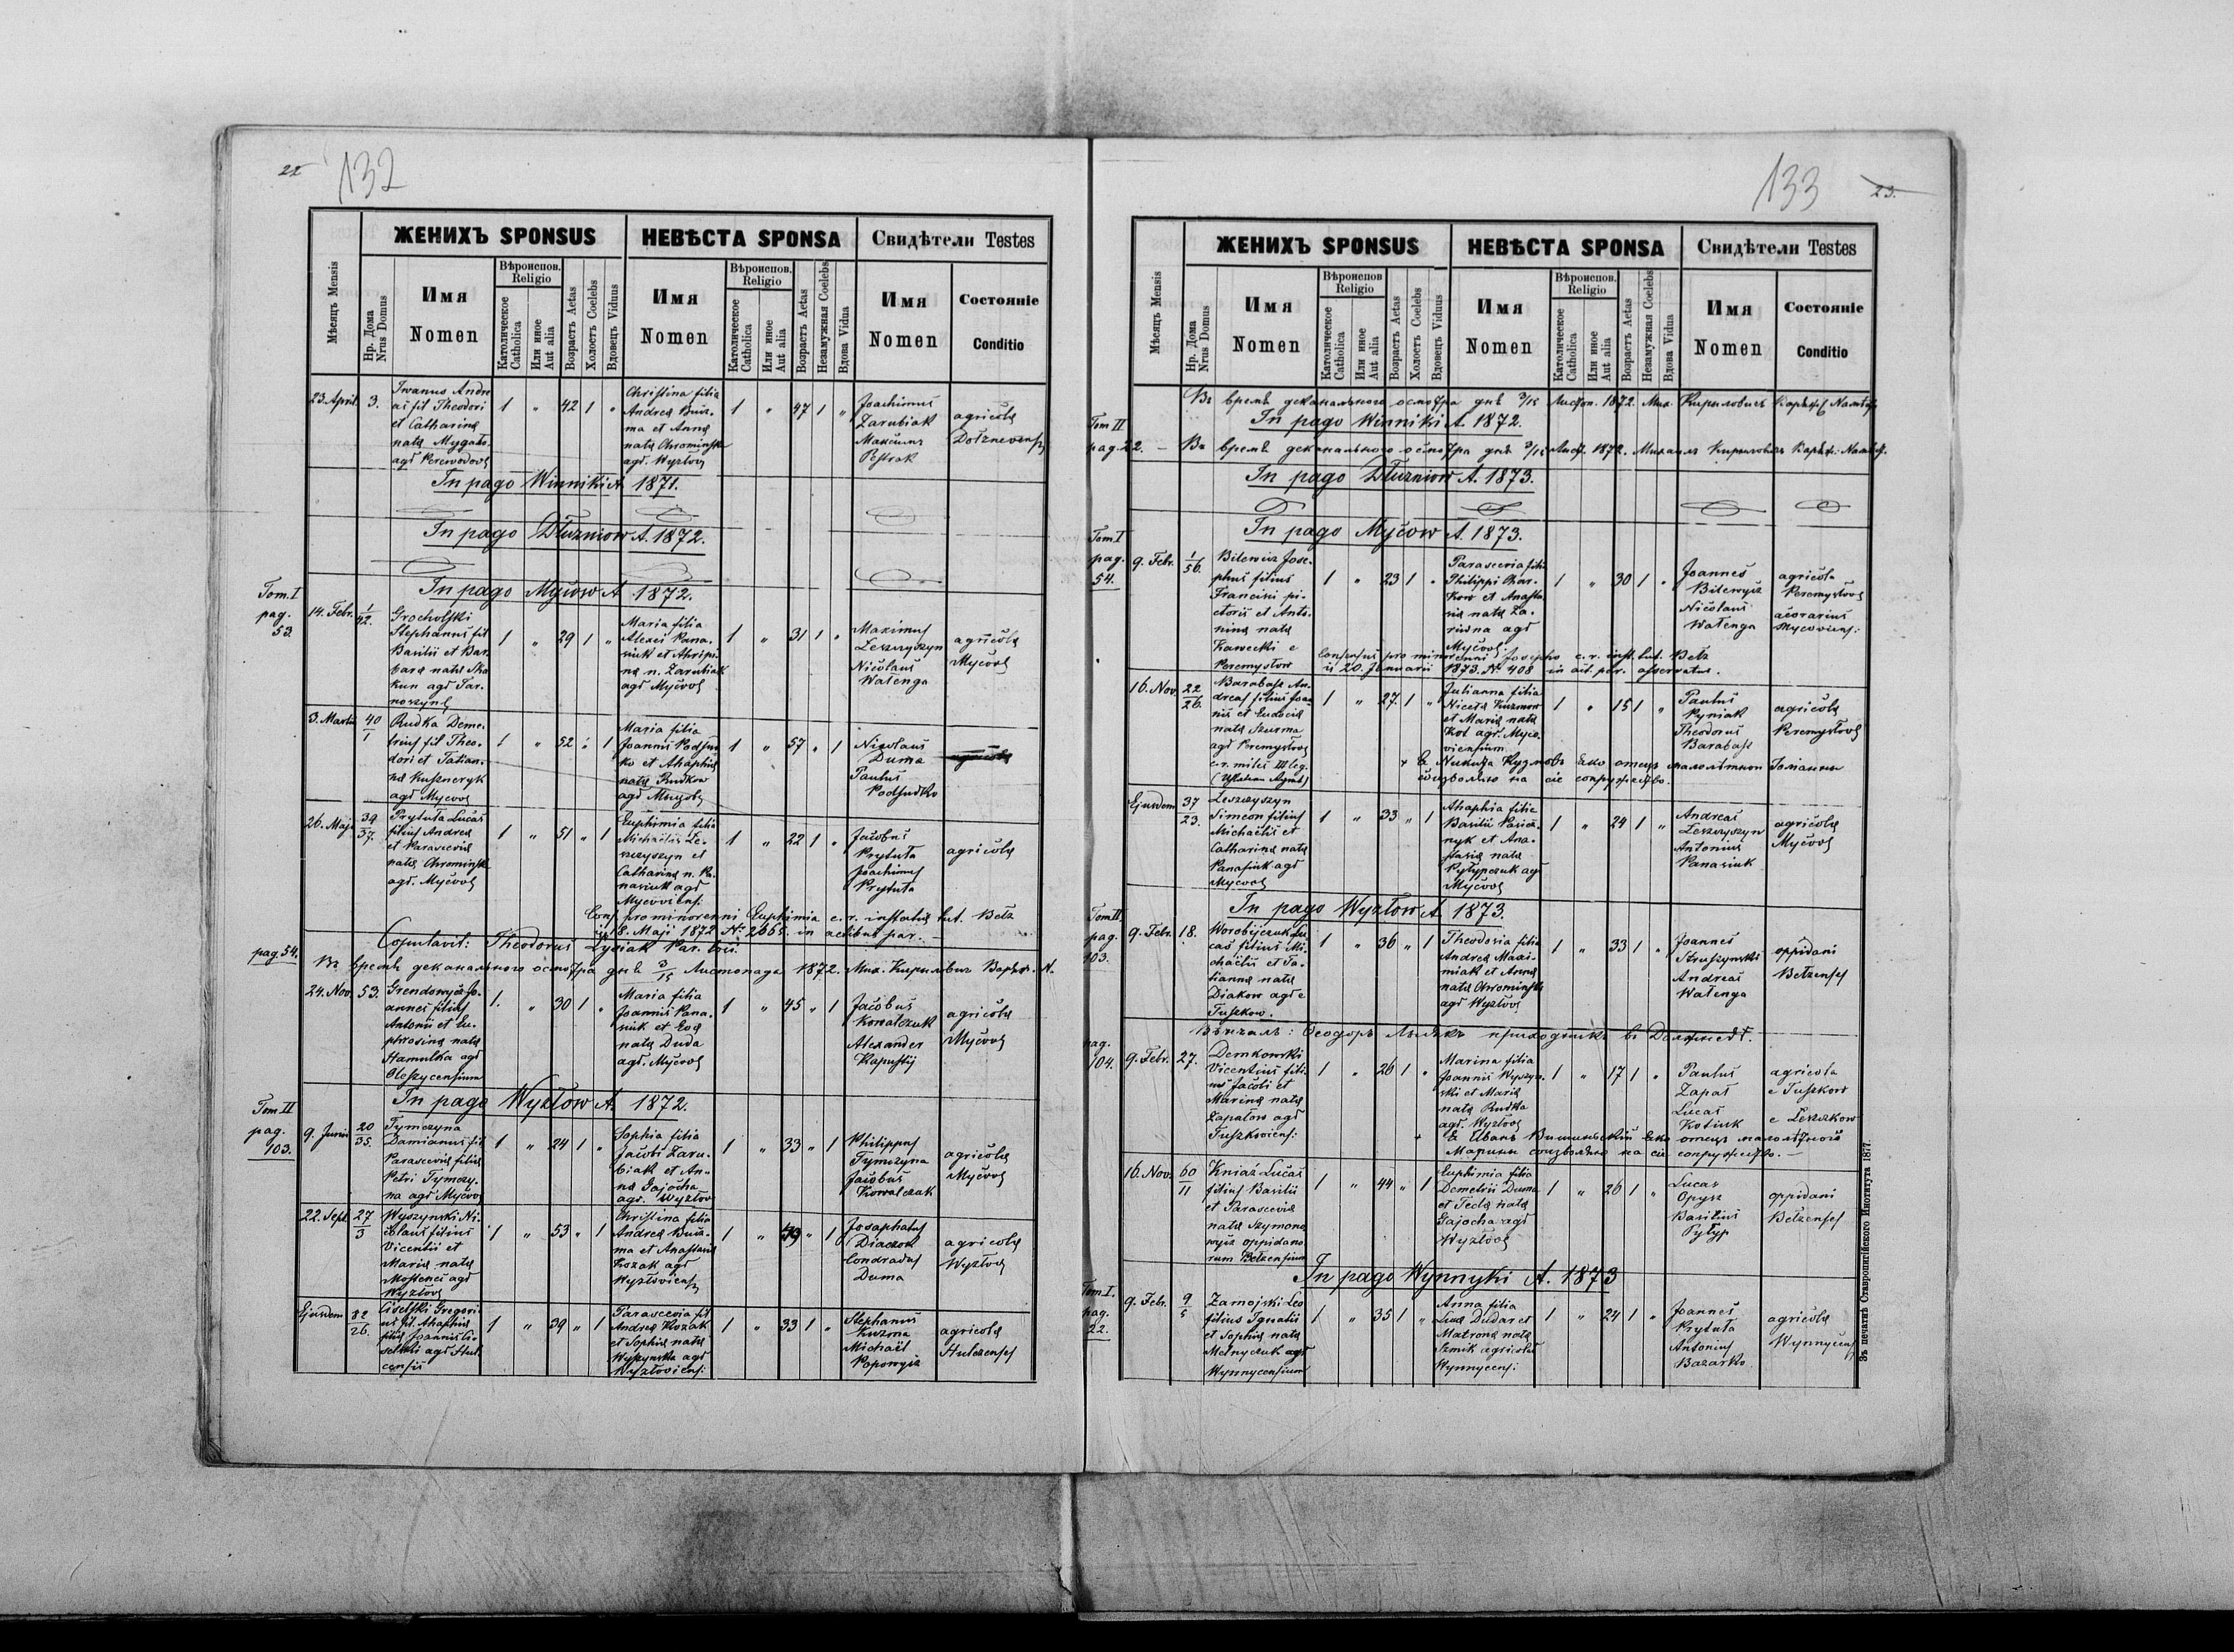 22
132
ЖЕНИХЪ SPONSUS
НЕВѢСТА SPONSA
Свидѣтели Testes
Мѣсяцъ Mensis
Нр. Дома
Nrus Domus
Имя
Nomen
Вѣроиспов.
Religio
Католическое
Catholica
Или иное
Aut alia
Возрастъ Aetas
Холостъ Coelebs
Вдовецъ Viduus
Имя
Nomen
Вѣроиспов.
Religio
Католическое
Catholica
Или иное
Aut alia
Возрастъ Aetas
Незамужная Coelebs
Вдова Vidua
Имя
Nomen
Состояніе
Conditio
23. April. 3.
Iwanus Andre
as fil Theodori
et Catharina
nata
agr
1 " 42 1 "
Christina filia
Andrea
ma et Anna
nata Chrominska
agr. Wyzłov
1 " 47 1 "
Joachimus
Zarubiak
Maximus
Pestrak
agricola
In pago Winniki A. 1871.
In pago Dłużniow A. 1872.
In pago Myców A 1872.
Tom. I
pag.
53.
14. Febr. 1/42.
Grocholski
Stephanus fil
Basilii et Bar
bara nata Ska
kun agr Tar
noszyn
1 " 29 1 "
Maria filia
Alexii Pana-
siuk et Ahripi
na n. Zarubiak
agr Mycov
1 " 31 1 "
Maximus
Leszczyszyn
Nicolaus
Watenga
agricola
Mycov
3. Martii 40/1
Rudka Deme-
trius fil Theo-
dori et Tatian-
na Kuszneryk
agr Mycov
1 " 52 " 1
Maria filia
Joannis Podsud
ko et Ahaphia
nata Rudkow
agr
1 " 57 " 1
Nicolaus
Duma
Paulus
Podsudko
26. Maji 39/37.
Prytuła Lucas
filius Andrea
et Parascevia
nata Chrominska
agr. Mycov
1 " 51 " 1
Euphimia filia
Michaelis Le-
szczyszyn et
Catharina n. Pa-
nasiuk agr
Mycoviens.
1 " 22 1 "
Jacobus
Prytuła
Joachimus
Prytuła
agricola
Cons. pro minorenni Euphimia c. r. instantia tut. Betz
8. Maji 1872 Nr 2665. in actibus par.
Copulavit: Theodorus Lysiak Par.
pag. 54.
Въ времѧ деканального осмотра днѧ 3/15 Листопада 1872. Мих. Кирилович
24. Nov. 53.
Grendowycz Jo-
annes filius
Antonii et Eu-
phrosina nata
Hamulka agr
Oleszycensium
1. " 30 1 "
Maria filia
Joannis Pana-
siuk et Eva
nata Duda
agr. Mycov
1 " 45 " 1
Jacobus
Kowalczuk
Alexander
Kapustij
agricola
Mycov
In pago Wyzłow A. 1872.
Tom. II
pag.
103.
9. Junii 20/35.
Tymczyna
Damianus fil
Parascevia filia
Petri Tymczy-
na agr Mycov
1 " 24 1 "
Sophia filia
Jacobi Zaru-
biak et An-
na Gajocha
agr. Wyzłov
1 " 33 " 1
Philippus
Tymczyna
Jacobus
Kowalczuk
agricola
Mycov
22. Sept. 27/3
Wyszynski Ni-
colaus filius
Vicentii et
Maria nata
Mostenci agr
Wyzłov
1 " 53 " 1
Christina filia
Andrea
ma et Anastasia
Kozak agr
Wyzłoviens
1 " 49 " 1
Josaphatus
Diaczok
Condradus
Duma
agricola
Wyzłov
Ejusdem 82/26.
Ciselski Gregori
us fil. Ahaphia
filia Joannis Ci-
selski agr Hul
censis
1 " 39 " 1
Parascevia fil
Andrea Kozak
et Sophia nata
Wyszynska agr
Wyzłoviens.
1 " 33 1 "
Stephanus
Kuzma
Michaël
Popowycz
agricola
Hulczenses
133
23.
ЖЕНИХЪ SPONSUS
НЕВѢСТА SPONSA
Свидѣтели Testes
Мѣсяцъ Mensis
Нр. Дома
Nrus Domus
Имя
Nomen
Вѣроиспов
Religio
Католическое
Catholica
Или иное
Aut alia
Возрастъ Aetas
Холостъ Coelebs
Вдовецъ Viduus
Имя
Nomen
Вѣроиспов.
Religio
Католическое
Catholica
Или иное
Aut alia
Возрастъ Aetas
Незамужная Coelebs
Вдова Vidua
Имя
Nomen
Состояніе
Conditio
Въ времѧ деканального осмотра днѧ 3/15 Листоп. 1872. Мих. Кирилович
In pago Winniki A. 1872.
Tom II
pag. 22. —
Въ времѧ деканального осмотра днѧ 3/15 Лист. 1872. Михаилъ Кирилович
In pago Dłużniow A. 1873.
In pago Myców A. 1873.
Tom. I
pag.
54.
9. Febr. 1/56.
Bilewicz Jose-
phus filius
Francisci pi-
ctoris et Anto-
nina nata
Kawecki e
Peremysłow
1 " 23 1 "
Parascevia filia
Philippi
kow et Anasta
sia nata Za-
agr
Mycov.
1 " 30 1 "
Joannes
Bilewycz
Nicolaus
Watenga
agricola
Peremysłov
Mycoviens.
Consensus pro minorenni Josepho c. r. inst. tut. Betz
20. Januarii 1873. Nr 408 in act. par. asservatur.
16. Nov. 22/26.
Barabasz An-
dreas filius Joan
nis et Eudocia
nata Szurma
agr Peremysłov
c. r. miles III leg.
1 " 27. 1 "
Julianna filia
Niceta Kuzmow
et Maria nata
Kot agr. Myco-
viensium
1 " 15 1 "
Paulus
Pyniak
Theodorus
Barabasz
agricola
Peremysłov
+ Я Никита Кузмовъ яко отецъ малолѣтной Юліанны
соизволяю на сіе супружество.
Ejusdem 37/23.
Leszczyszyn
Simeon filius
Michaelis et
Catharina nata
Panasiuk agr
Mycov
1 " 33 " 1
Ahaphia filia
Basilii
nyk et Ana-
stasia nata
Pylypczuk agr
Mycov
1 " 24 1 "
Andreas
Leszczyszyn
Antonius
Panasiuk
agricola
Mycov
In pago Wyzłow A. 1873.
Tom II.
pag.
103.
9. Febr. 18.
Worobijczuk Lu
cas filius Mi-
chaëlis et Ta-
tianna nata
Diakow agr e
Tuszkow.
1 " 36 " 1
Theodosia filia
Andrea Maxi-
miak et Anna
nata Chrominska
agr Wyzłov
1 " 33 1 "
Joannes
Struszynski
Andreas
Watenga
oppidani
Betzenses
Вѣнчалъ: Ѳеодоръ Лысякъ приходникъ въ
pag.
104.
9. Febr. 27.
Demkowski
Vicentius fili-
us Jacobi et
Marina nata
Zapałow agr
Tuszkoviens:
1 " 26 1 "
Marina filia
Joannis Wyszyn-
ski et Maria
nata Rudka
agr. Wyzłov
1 " 17 1 "
Paulus
Zapał
Lucas
Kotiuk
agricola
e Tuszkow
e Leszczkow
+ Я Иванъ Вишинскій яко отецъ малолѣтной
Марины соизволяю на сіе супружество. —
16. Nov. 60/11
Kniaź Lucas
filius Basilii
et Parascevia
nata Szymono
wycz oppidano
rum Betzensium
1 " 44 " 1
Euphimia filia
Demetrii Duma
et Tecla nata
Gajocha agr
Wyzłov
1 " 26 1 "
Lucas
Opysz
Basilius
Pyłyp
oppidani
Betzenses
In pago Wynnyki A. 1873
Tom. I.
pag.
22.
9. Febr. 9/5
Zamojski Leo
filius Ignatii
et Sophia nata
Melnyczuk agr
Wynnycensium
1 " 35 1 "
Anna filia
Luca Dudar et
Matrona nata
Szmik agricola
Wynnycens:
1 " 24 1 "
Joannes
Prytuła
Antonius
Bazarko
agricola
Wynnycens
Зъ печатнѣ Ставропигійского Института 1877.